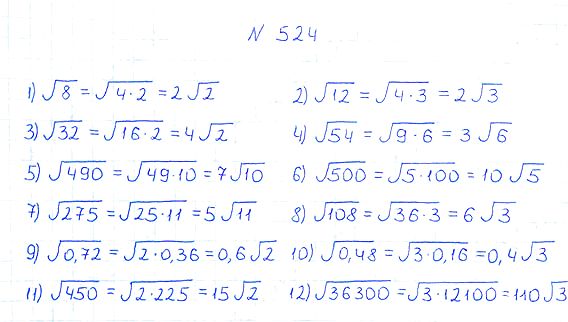 N 524
1) √8 = √4·2 = 2√2 2) √12 = √4·3 = 2√3
3) √32 = √16·2 = 4√2 4) √54 = √9·6 = 3√6
5) √490 = √49·10 = 7√10 6) √500 = √5·100 = 10√5
7) √275 = √25·11 = 5√11 8) √108 = √36·3 = 6√3
9) √0,72 = √2·0,36 = 0,6√2 10) √0,48 = √3·0,16 = 0,4√3
11) √450 = √2·225 = 15√2 12) √36300 = √3·12100 = 110√3